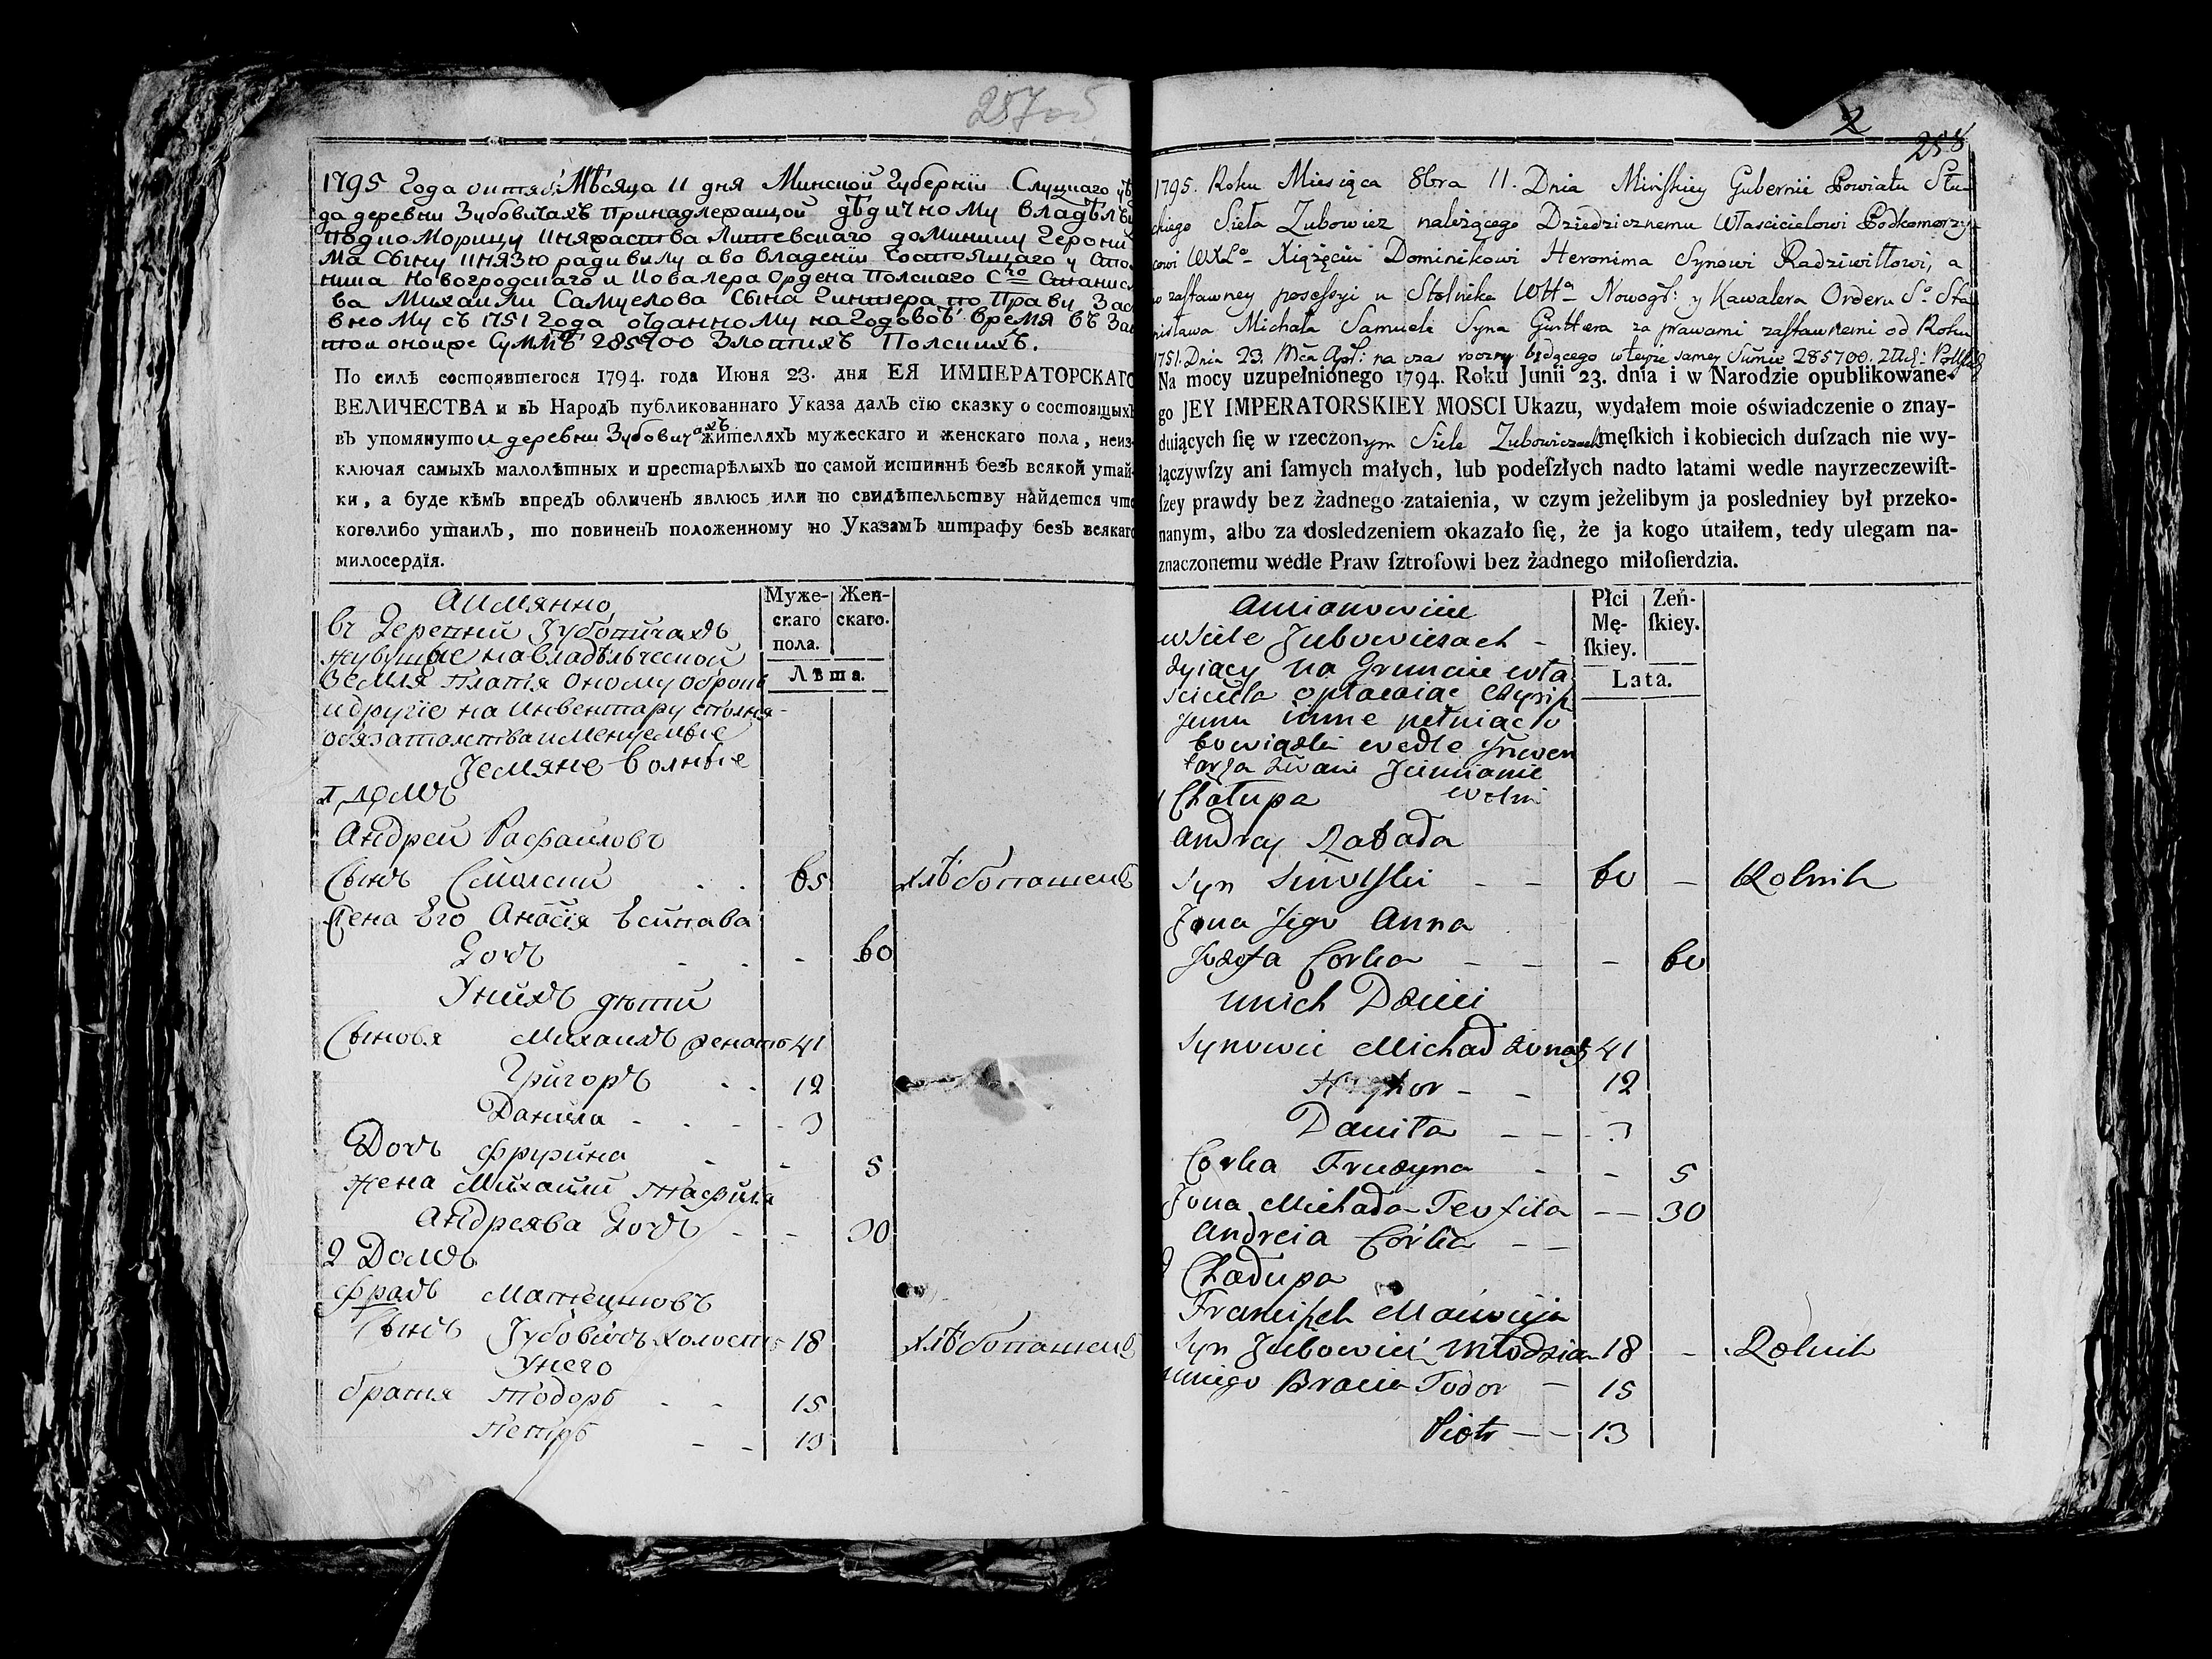 287об
1795 Года октяб: Мѣсяца 11 дня Минской Губернїи Слуцкаго уѣ
да деревни Зубовичахъ принадлежащой дѣдичному владѣлъ
подкоморицу княжества Литевскаго доминику Герони
ма Сыну князю радивилу а во владенїи состоящаго у Сто
ника новогродскаго и кавалера Ордена Полскаго Сго Станисл
ва Михаили Самуелова Сына Гинтера по Праву Зас
вному съ 1751 Года отданному на Годовоѣ время въ За
той оноиже Суммѣ 285700 Злотихъ Полскихъ.
По силѣ состоявшегося 1794. года Июня 23. дня ЕЯ ИМПЕРАТОРСКАГО
ВЕЛИЧЕСТВА и въ Народъ публикованнаго Указа далъ сїю сказку о состоящыхъ
въ упомянутои деревни Зубовичахъ жителяхъ мужескаго и женскаго пола, неиз-
ключая самыхъ малолѣтныхъ и престарѣлыхъ по самой истиннѣ безъ всякой утай-
ки, а буде кѣмъ впредъ обличенъ явлюсь или по свидѣтельству найдется что
коголибо утаилъ, то повиненъ положенному по Указамъ штрафу безъ всякаго
милосердїя.
Муже-скаго пола. Жен-скаго.
Лѣта.
Аимянно
въ Деревни Зубовичахъ
живущие на владѣльческой
Земля платя оному оброкъ
и другїе на Инвентару
обязателства именуемые
Земляне Волные
1 домъ
Андрей Рафаиловъ
Сынъ Смолский - - 65 хлѣбопашецъ
Жена Его
Дочъ - - - 60
У нихъ дѣти
Сыновя Михаилъ женатъ 41
Григоръ - - 12
Данила - - - 3
Дочъ Фрузина - - 5
жена Михаили
Андреява Дочъ - - 30
2 Домъ
Матеушовъ
Сынъ Зубовичъ холостъ 18 хлѣбопашецъ
У него
братя Тодоръ - - 15
Петръ - - 13
2
258
1795. Roku Miesiąca 8bra 11. Dnia Mińskiey Gubernii Powiatu Słu-
ckiego Sieła Zubowicz należącego Dziedzicznemu Właścicielowi Podkomorzy-
cowi WXLo Xiążęciu Dominikowi Heronima Synowi Radziwiłłowi, a
w zastawney posessyi u Stolnika Nowogo: y Kawalera Orderu So Sta-
nisława Michała Samuela Syna Günttera za prawami zastawnemi od Roku
1751. Dnia 23. Mca Apr: na czas roczny będącego w teyże samey Sumie 285700. Złłch: Polskich
Na mocy uzupełnionego 1794. Roku Junii 23. dnia i w Narodzie opublikowane-
go JEY IMPERATORSKIEY MOSCI Ukazu, wydałem moie oświadczenie o znay-
duiących ſię w rzeczonym Siele Zubowiczach męſkich i kobiecich duſzach nie wy-
łączywſzy ani ſamych małych, lub podeſzłych nadto latami wedle nayrzeczewiſt-
ſzey prawdy bez żadnego zataienia, w czym jeżelibym ja posledniey był przeko-
nanym, albo za dosledzeniem okazało ſię, że ja kogo utaiłem, tedy ulegam na-
znaczonemu wedle Praw ſztrofowi bez żadnego miłoſierdzia.
Płci Mę-ſkiey. Żeń-ſkiey.
Lata.
Amianowicie
w Siele Zubowiczach -
żyiący na Gruncie wła
sciciela opłacaiąc Czynſz
jemu inne pełniąc
Powiązki wedle Inwen
tarza zwani Ziemianie
1 Chałupa wolni
Andrzy
Syn Smolſki - - 60 - Rolnik
Żona Jego Anna
Jozefa Corka - - - 60
u nich Dzieci
Synowie Michał żonaty 41
- - 12
Daniła - - - 3
Corka Fruzyna - - 5
Żona Michała Teofila - - 30
Andreia Córka - -
2 Chałupa
Franciſzek Mateuſza
Syn Zubowicz Młodzian 18 - Rolnik
u niego Bracia Todor - 15
Piotr - - 13